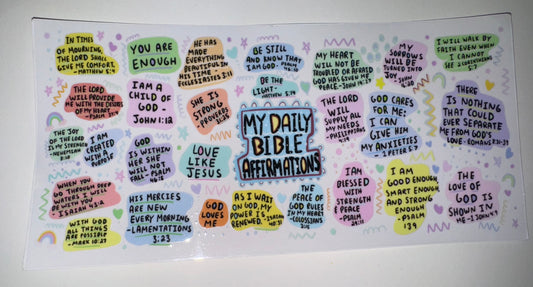 IN TIMES
OF MOURNING,
THE LORD SHALL
GIVE ME COMFORT.
-MATTHEW 5:4
YOU ARE
ENOUGH
HE HAS
MADE
EVERYTHING
BEAUTIFUL IN
HIS TIME -
ECCLESIASTES 3:11
BE STILL
AND KNOW THAT
I AM GOD. - PSALM
46:10
MY HEART
WILL NOT BE
TROUBLED OR AFRAID
GOD HAS GIVEN ME
PEACE. - JOHN 14:27
MY
SORROWS
WILL BE
TURNED INTO
JOY -
JOHN
I WILL WALK BY
FAITH EVEN WHEN
I CANNOT
SEE - 2 CORINTHIANS
5:7
THE LORD
WILL PROVIDE
ME WITH THE DESIRES
OF MY HEART
-PSALM
I AM A
CHILD OF
GOD -
JOHN
1:12
SHE IS
STRONG
-PROVERBS
BE THE
LIGHT -
MATTHEW 5:14
MY DAILY
BIBLE
AFFIRMATIONS
THE LORD
WILL
SUPPLY ALL
MY NEEDS
-PHILIPPIANS
4:19
GOD CARES
FOR ME;
I CAN
GIVE HIM
MY ANXIETIES
- 1 PETER 5:7
THERE
IS NOTHING
THAT COULD
EVER SEPARATE
ME FROM GOD'S
LOVE - ROMANS
THE JOY
OF THE LORD
IS MY STRENGTH
-NEHEMIAH
8:10
I AM
CREATED
WITH A
PURPOSE
GOD
IS WITHIN
HER SHE
WILL NOT
FALL - PSALM
46:5
LOVE
LIKE
JESUS
WHEN YOU
GO THROUGH DEEP
WATERS I WILL
BE WITH YOU
-ISAIAH 43:2
HIS MERCIES
ARE NEW
EVERY MORNING
-LAMENTATIONS
3:23
GOD
LOVES
ME
AS I WAIT
ON GOD, MY
POWER IS
RENEWED. - ISAIAH
40:31
THE
PEACE OF
GOD RULES
IN MY HEART
-COLOSSIANS
3:15
I AM
BLESSED
WITH
STRENGTH
& PEACE
-PSALM
29:11
I AM
GOOD ENOUGH,
SMART ENOUGH,
AND STRONG
ENOUGH
-PSALM
139
THE
LOVE OF
GOD IS
SHOWN IN
ME - 1 JOHN 4:9
WITH GOD
ALL THINGS
ARE POSSIBLE
- MARK 10:27